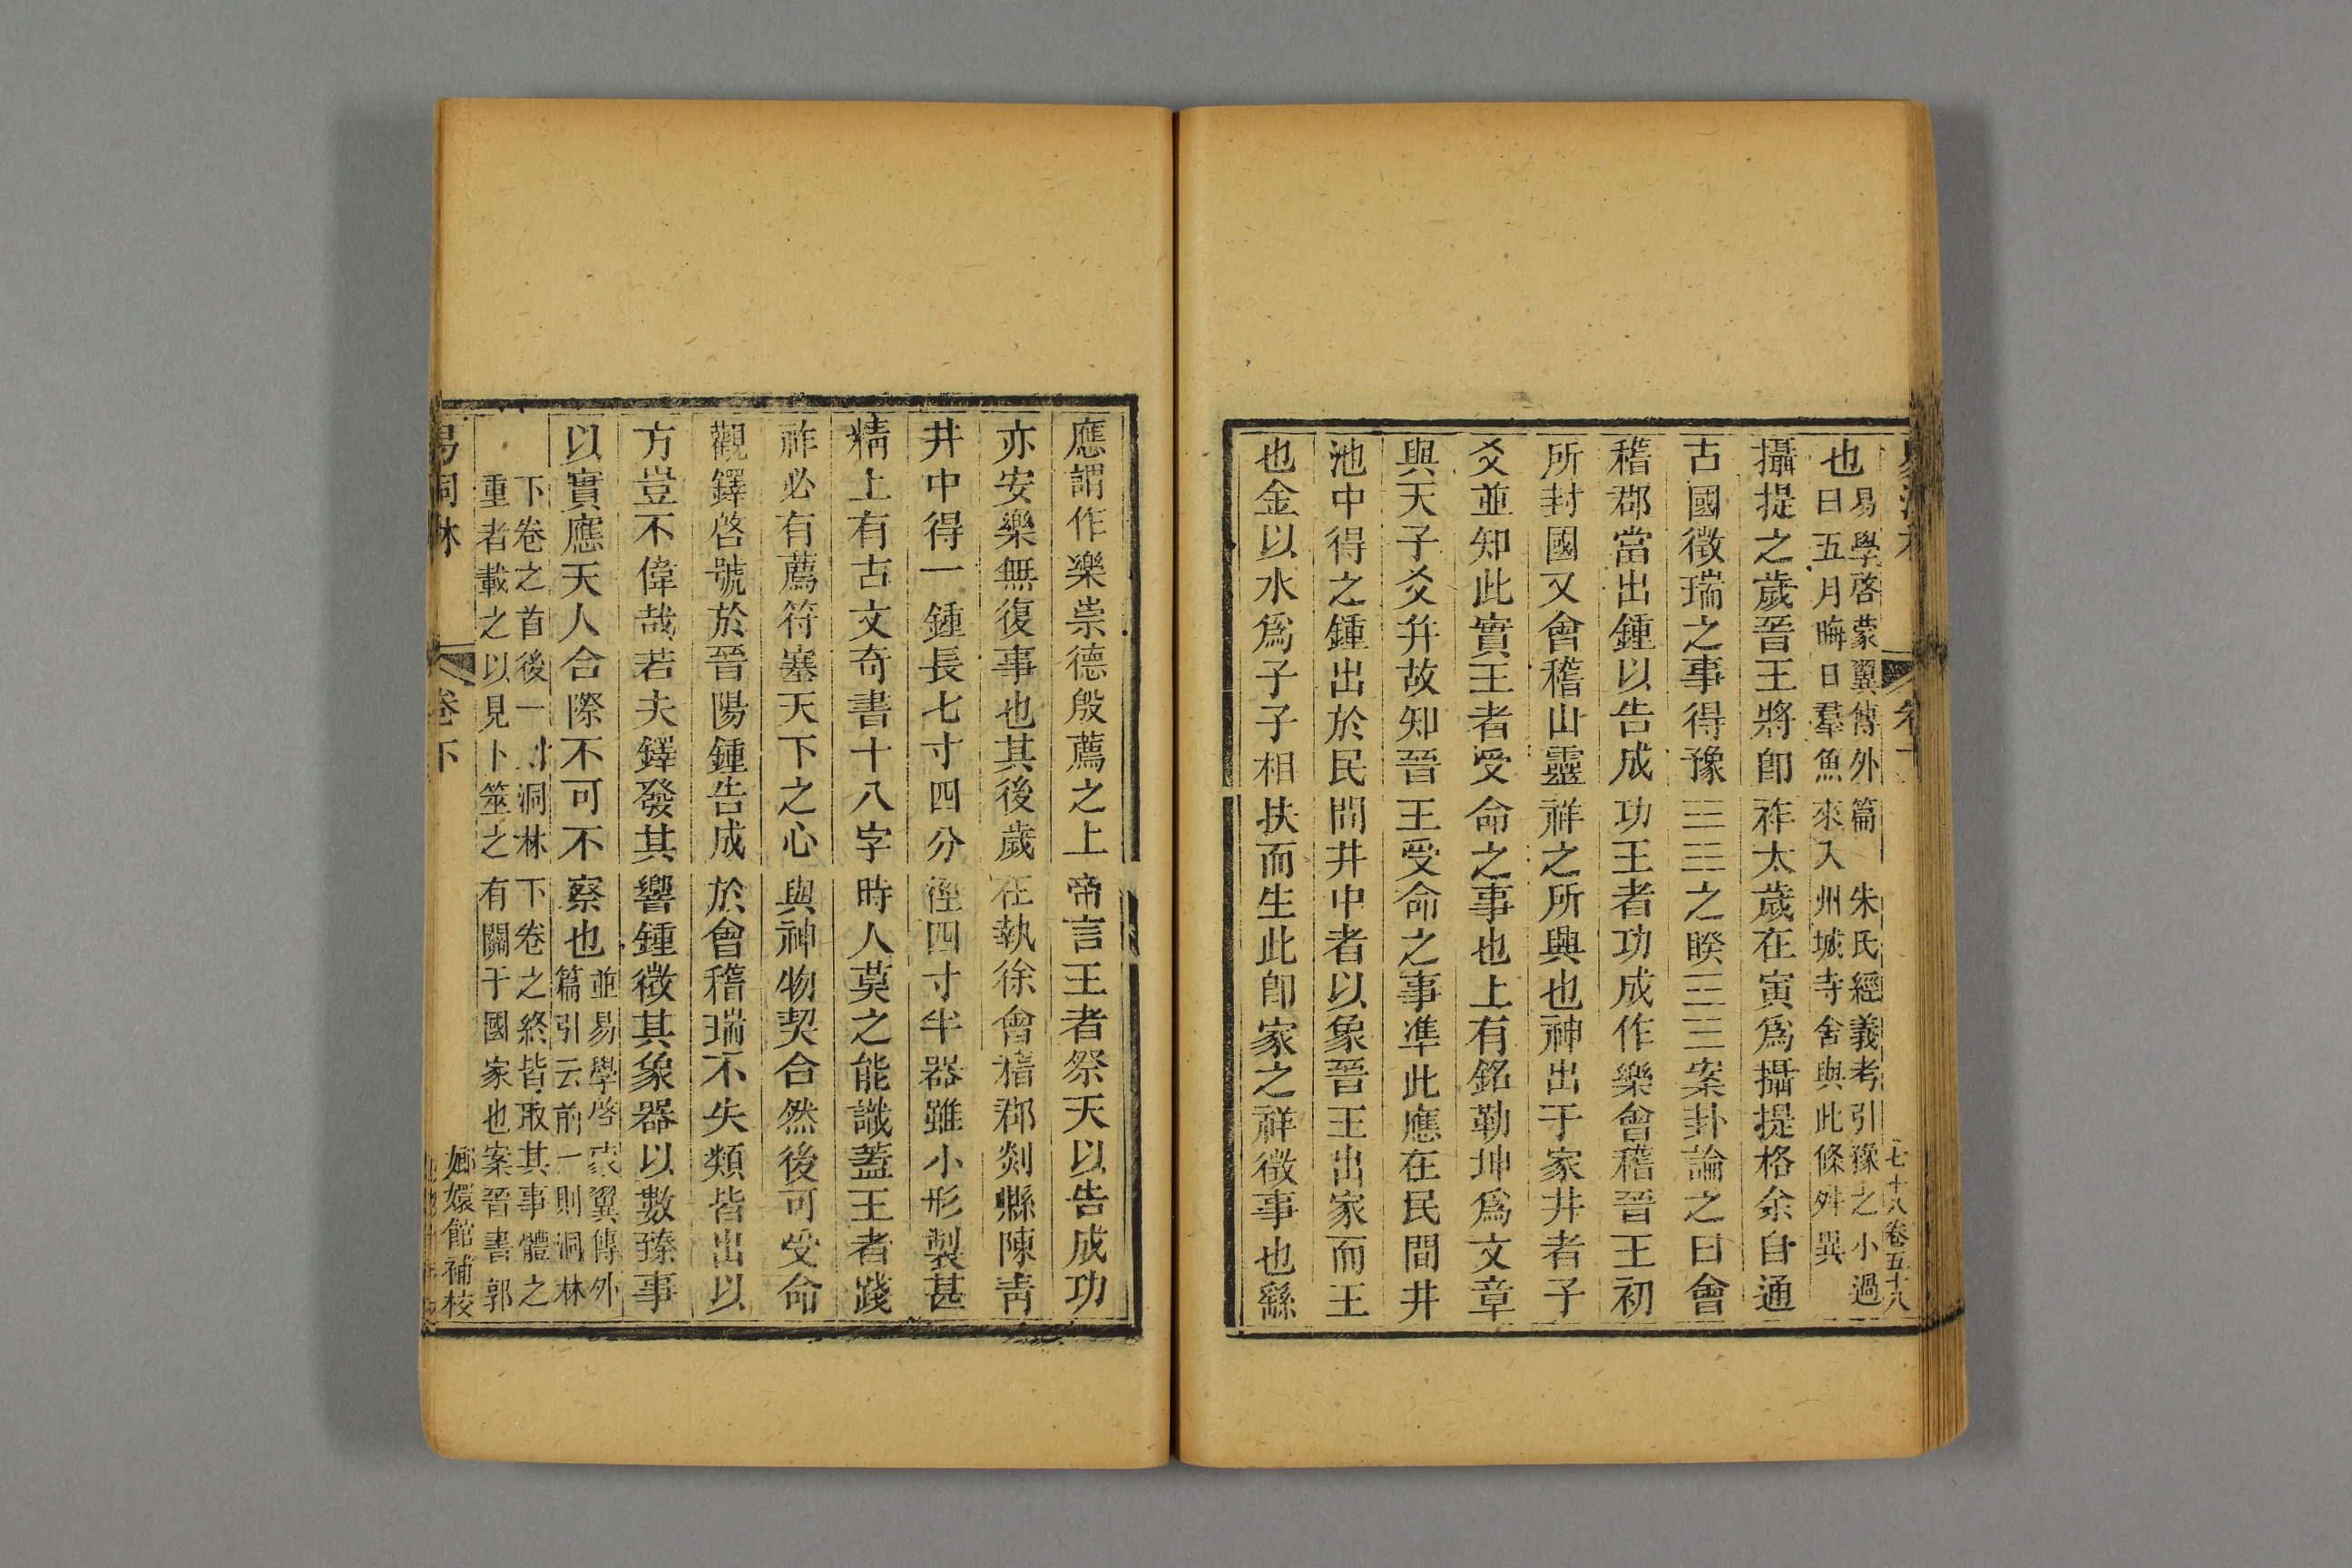 七十八卷五十八
也易學啓蒙翼傳外篇 朱氏經義考引豫之小過
曰五月晦日羣魚來入州城寺舍與此條舛異
攝提之歲晉王將卽祚太歲在寅爲攝提格余自通
古國徵瑞之事得豫☳☷之睽☲☱案卦論之曰會
稽郡當出鍾以告成功王者功成作樂會稽晉王初
所封國又會稽山靈祥之所興也神出于家井者子
爻並知此實王者受命之事也上有銘勒坤爲文章
與天子爻幷故知晉王受命之事凖此應在民間井
池中得之鍾出於民間井中者以象晉王出家而王
也金以水爲子子相扶而生此卽家之祥徵事也繇
應謂作樂崇德殷薦之上帝言王者祭天以告成功
亦安樂無復事也其後歲在執徐會稽郡剡縣陳靑
井中得一鍾長七寸四分徑四寸半器雖小形製甚
精上有古文奇書十八字時人莫之能識蓋王者踐
祚必有薦符塞天下之心與神物契合然後可受命
觀鐸啓號於晉陽鍾告成於會稽瑞不失類皆出以
方豈不偉哉若夫鐸發其響鍾徵其象器以數臻事
以實應天人合際不可不察也並易學啓蒙翼傳外
篇引云前一則洞林
下卷之首後一則洞林下卷之終皆取其事體之
重者載之以見卜筮之有關于國家也案晉書郭
易洞林
卷下
嫏嬛館補校